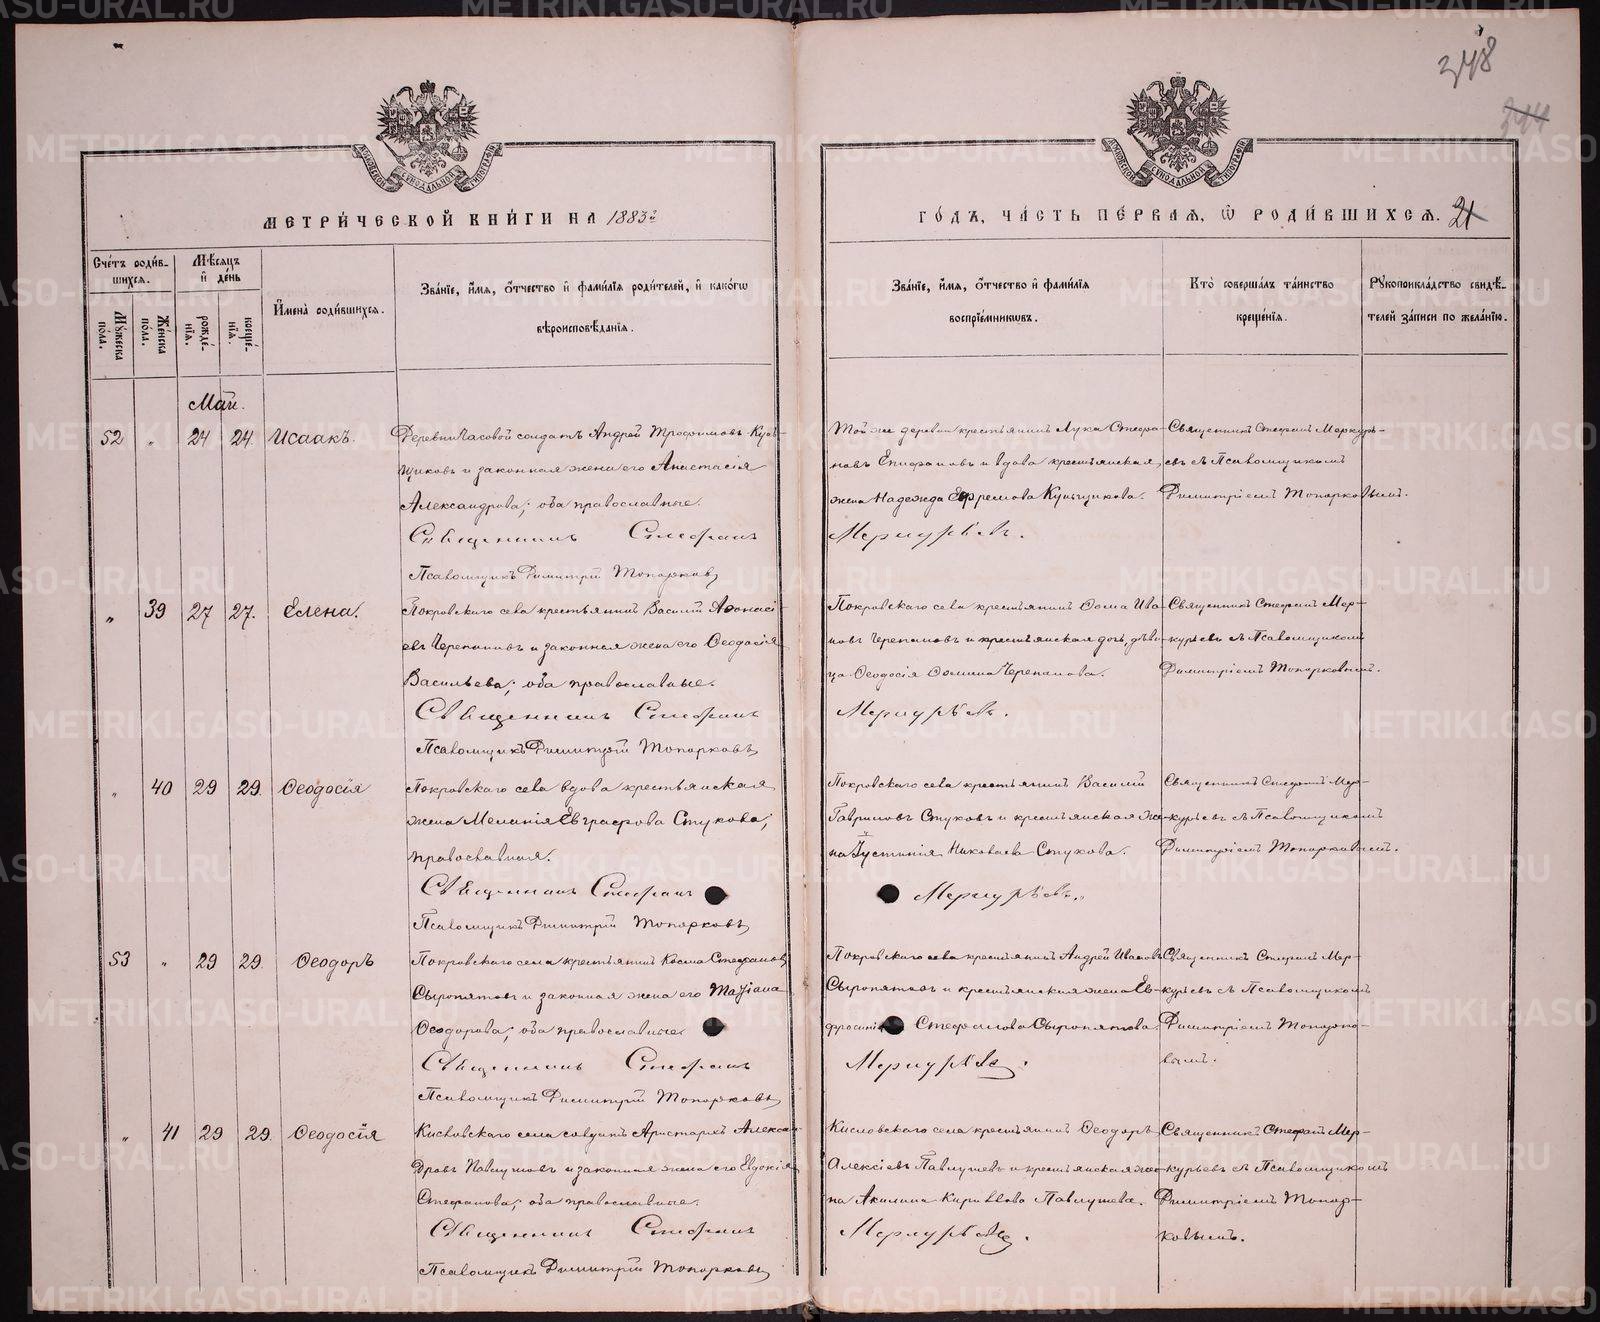 348
344
МЕТРИ́ЧЕСКОЙ КНИ́ГИ НА 1883й
ГО́ДЪ, ЧА́СТЬ ПЕ́РВАЯ, Ѿ РОДИ́ВШИХСЯ. 21
Сче́тъ роди́в-
шихся.
Мѣ́сяцъ
и де́нь
Му́жеска по́ла.
Же́нска по́ла.
рожде́-
нія.
креще́-
нія.
И́мена̀ роди́вшихся.
Зва́ніе, и́мя, о́тчество и фами́лія роди́телей, и како́гѡ
вѣроисповѣ́данія.
Зва́ніе, и́мя, о́тчество и фами́лія
воспріе́мниковъ.
Кто̀ соверша́лъ та́инство
креще́нія.
Рукоприкла́дство свидѣ́-
телей за́писи по жела́нію.
Май.
52 " 24 24. Исаакъ.
Деревни Часовой солдатъ Андрей Трофимовъ Кунь-
щиковъ и законная жена его Анастасія
Александрова; оба православные.
Священникъ Стефанъ
Псаломщикъ Димитрій Топорковъ
Той же деревни крестьянинъ Лука Стефа-
новъ Епифановъ и вдова крестьянская
жена Надежда Ефремова Куньщикова.
Меркурьевъ.
Священникъ Стефанъ Меркурь-
евъ съ Псаломщикомъ
Димитріемъ Топорковымъ.
" 39 27 27. Елена.
Покровскаго села крестьянинъ Василій Аѳонасі-
евъ Черепановъ и законная жена его Ѳеодосія
Васильева; оба православные.
Священникъ Стефанъ
Псаломщикъ Димитрій Топорковъ
Покровскаго села крестьянинъ Ѳома Ива-
новъ Черепановъ и крестьянская дочь, дѣви-
ца Ѳеодосія Ѳомина Черепанова.
Меркурьевъ.
Священникъ Стефанъ Мер-
курьевъ съ Псаломщикомъ
Димитріемъ Топорковымъ.
" 40 29 29. Ѳеодосія
Покровскаго села вдова крестьянская
жена Меланія Евграфова Стукова;
православная.
Священникъ Стефанъ
Псаломщикъ Димитрій Топорковъ
Покровскаго села крестьянинъ Василій
Гавриловъ Стуковъ и крестьянская же-
на Іустинія Николаева Стукова.
Меркурьевъ.
Священникъ Стефанъ Мер-
курьевъ съ Псаломщикомъ
Димитріемъ Топорковымъ.
53 " 29 29. Ѳеодоръ
Покровскаго села крестьянинъ Косма Стефановъ
Сыропятовъ и законная жена его Татіана
Ѳеодорова; оба православные.
Священникъ Стефанъ
Псаломщикъ Димитрій Топорковъ
Покровскаго села крестьянинъ Андрей Ивановъ
Сыропятовъ и крестьянская жена Ев-
фросинія Стефанова Сыропятова.
Меркурьевъ.
Священникъ Стефанъ Мер-
курьевъ съ Псаломщикомъ
Димитріемъ Топорко-
вымъ.
" 41 29 29. Ѳеодосія
Кисловскаго села солдатъ Аристархъ Алексан-
дровъ Павлушовъ и законная жена его Евдокія
Стефанова; оба православные.
Священникъ Стефанъ
Псаломщикъ Димитрій Топорковъ
Кисловскаго села крестьянинъ Ѳеодоръ
Алексіевъ Павлушевъ и крестьянская же-
на Акилина Кириллова Павлушева.
Меркурьевъ.
Священникъ Стефанъ Мер-
курьевъ съ Псаломщикомъ
Димитріемъ Топор-
ковымъ.
METRIKI.GASO-URAL.RU